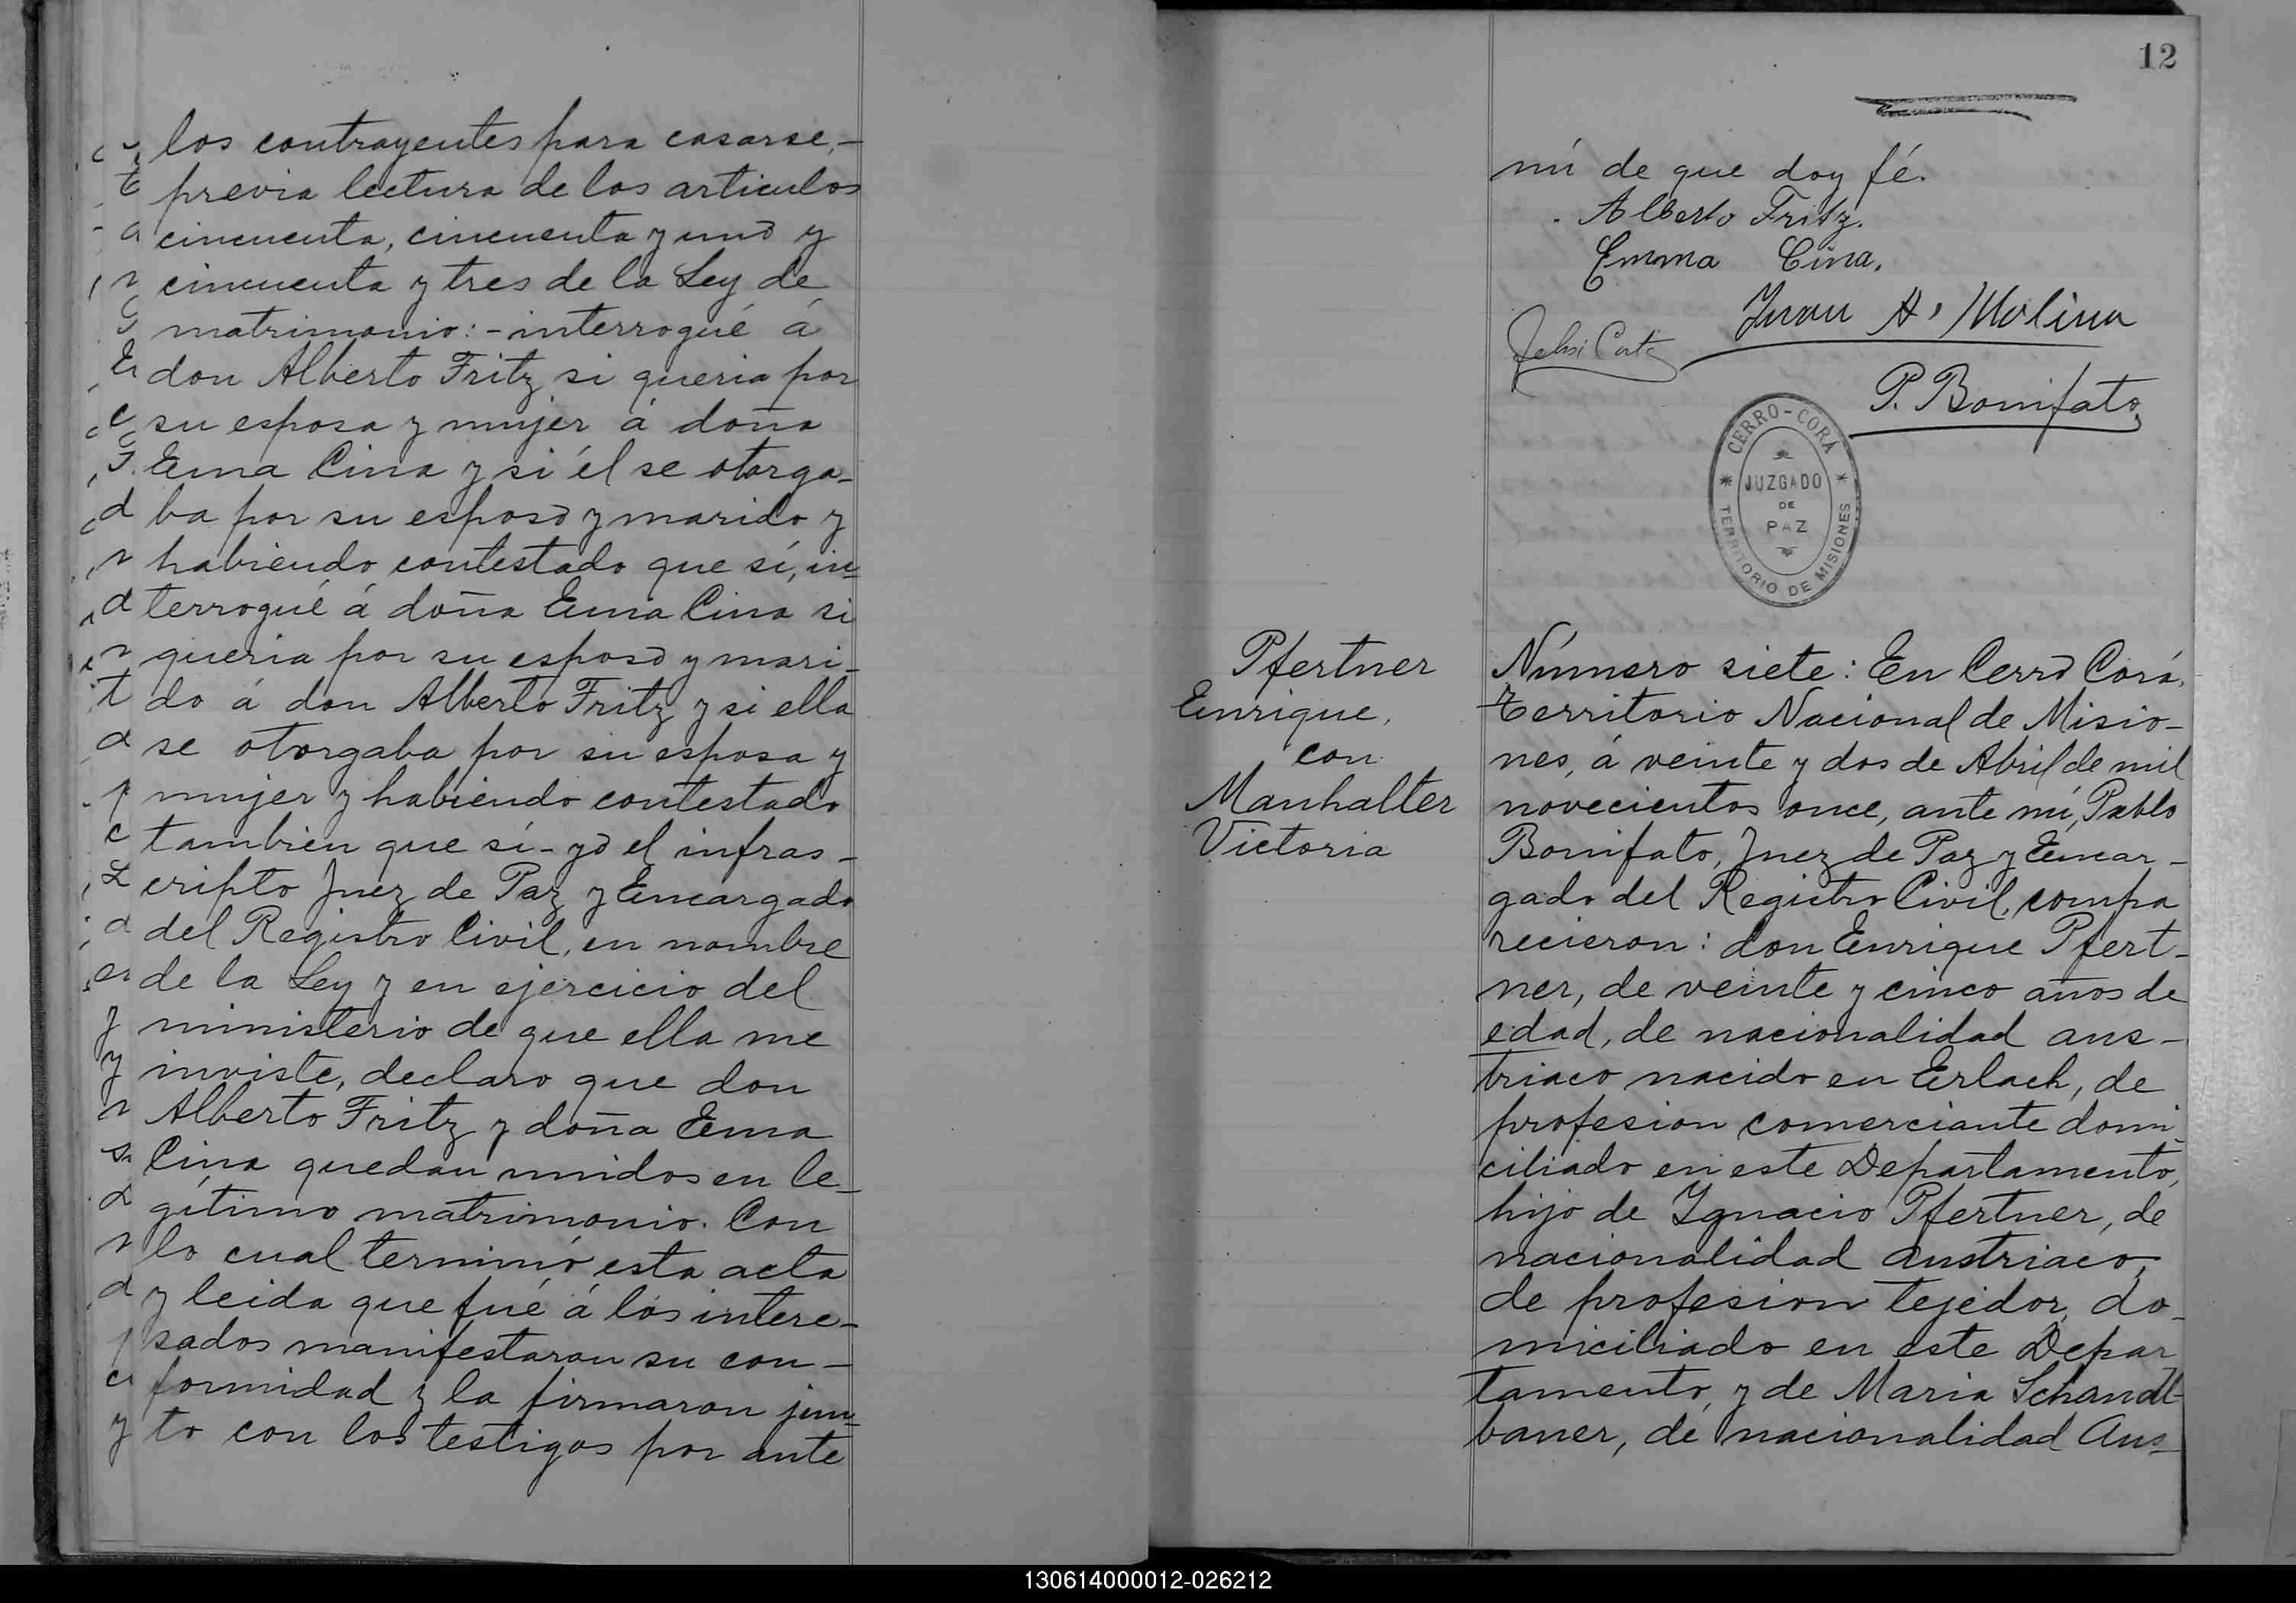 los contrayentes para casarse,-
previa lectura de los articulos
cincuenta, cincuenta y uno y
cincuenta y tres de la Ley de
matrimonio:- interrogué á
don Alberto Fritz si queria por
su esposa y mujer á doña
Ema Cina y si él se otorga-
ba por su esposo y marido y
habiendo contestado que sí, in-
terrogué á doña Ema Cina si
queria por su esposo y mari-
do á don Alberto Fritz y si ella
se otorgaba por su esposa y
mujer y habiendo contestado
tambien que sí - yo el infras-
cripto Juez de Paz y Encargado
del Registro Civil, en nombre
de la Ley y en ejercicio del
ministerio de que ella me
inviste, declaro que don
Alberto Fritz y doña Ema
Cina quedan unidos en le-
gítimo matrimonio. Con
lo cual terminó esta acta
y leida que fué á los intere-
sados manifestaron su con-
formidad y la firmaron jun-
to con los testigos por ante
12
mí de que doy fé.
Alberto Fritz.
Emma Cina.
Juan A. Molina
P. Bonifato
CERRO-CORÁ
JUZGADO
DE
PAZ
TERRITORIO DE MISIONES
Pfertner
Enrique,
con
Manhalter
Victoria
Número siete: En Cerro Corá,
Territorio Nacional de Misio-
nes, á veinte y dos de Abril de mil
novecientos once, ante mí, Pablo
Bonifato, Juez de Paz y Encar-
gado del Registro Civil, compa
recieron: don Enrique Pfert-
ner, de veinte y cinco años de
edad, de nacionalidad aus-
triaco nacido en Erlach, de
profesion comerciante domi-
ciliado en este Departamento,
hijo de Ygnacio Pfertner, de
nacionalidad austriaco,
de profesion tejedor, do-
miciliado en este Depar
tamento, y de Maria Schandl-
baner, de nacionalidad Aus-
130614000012-026212